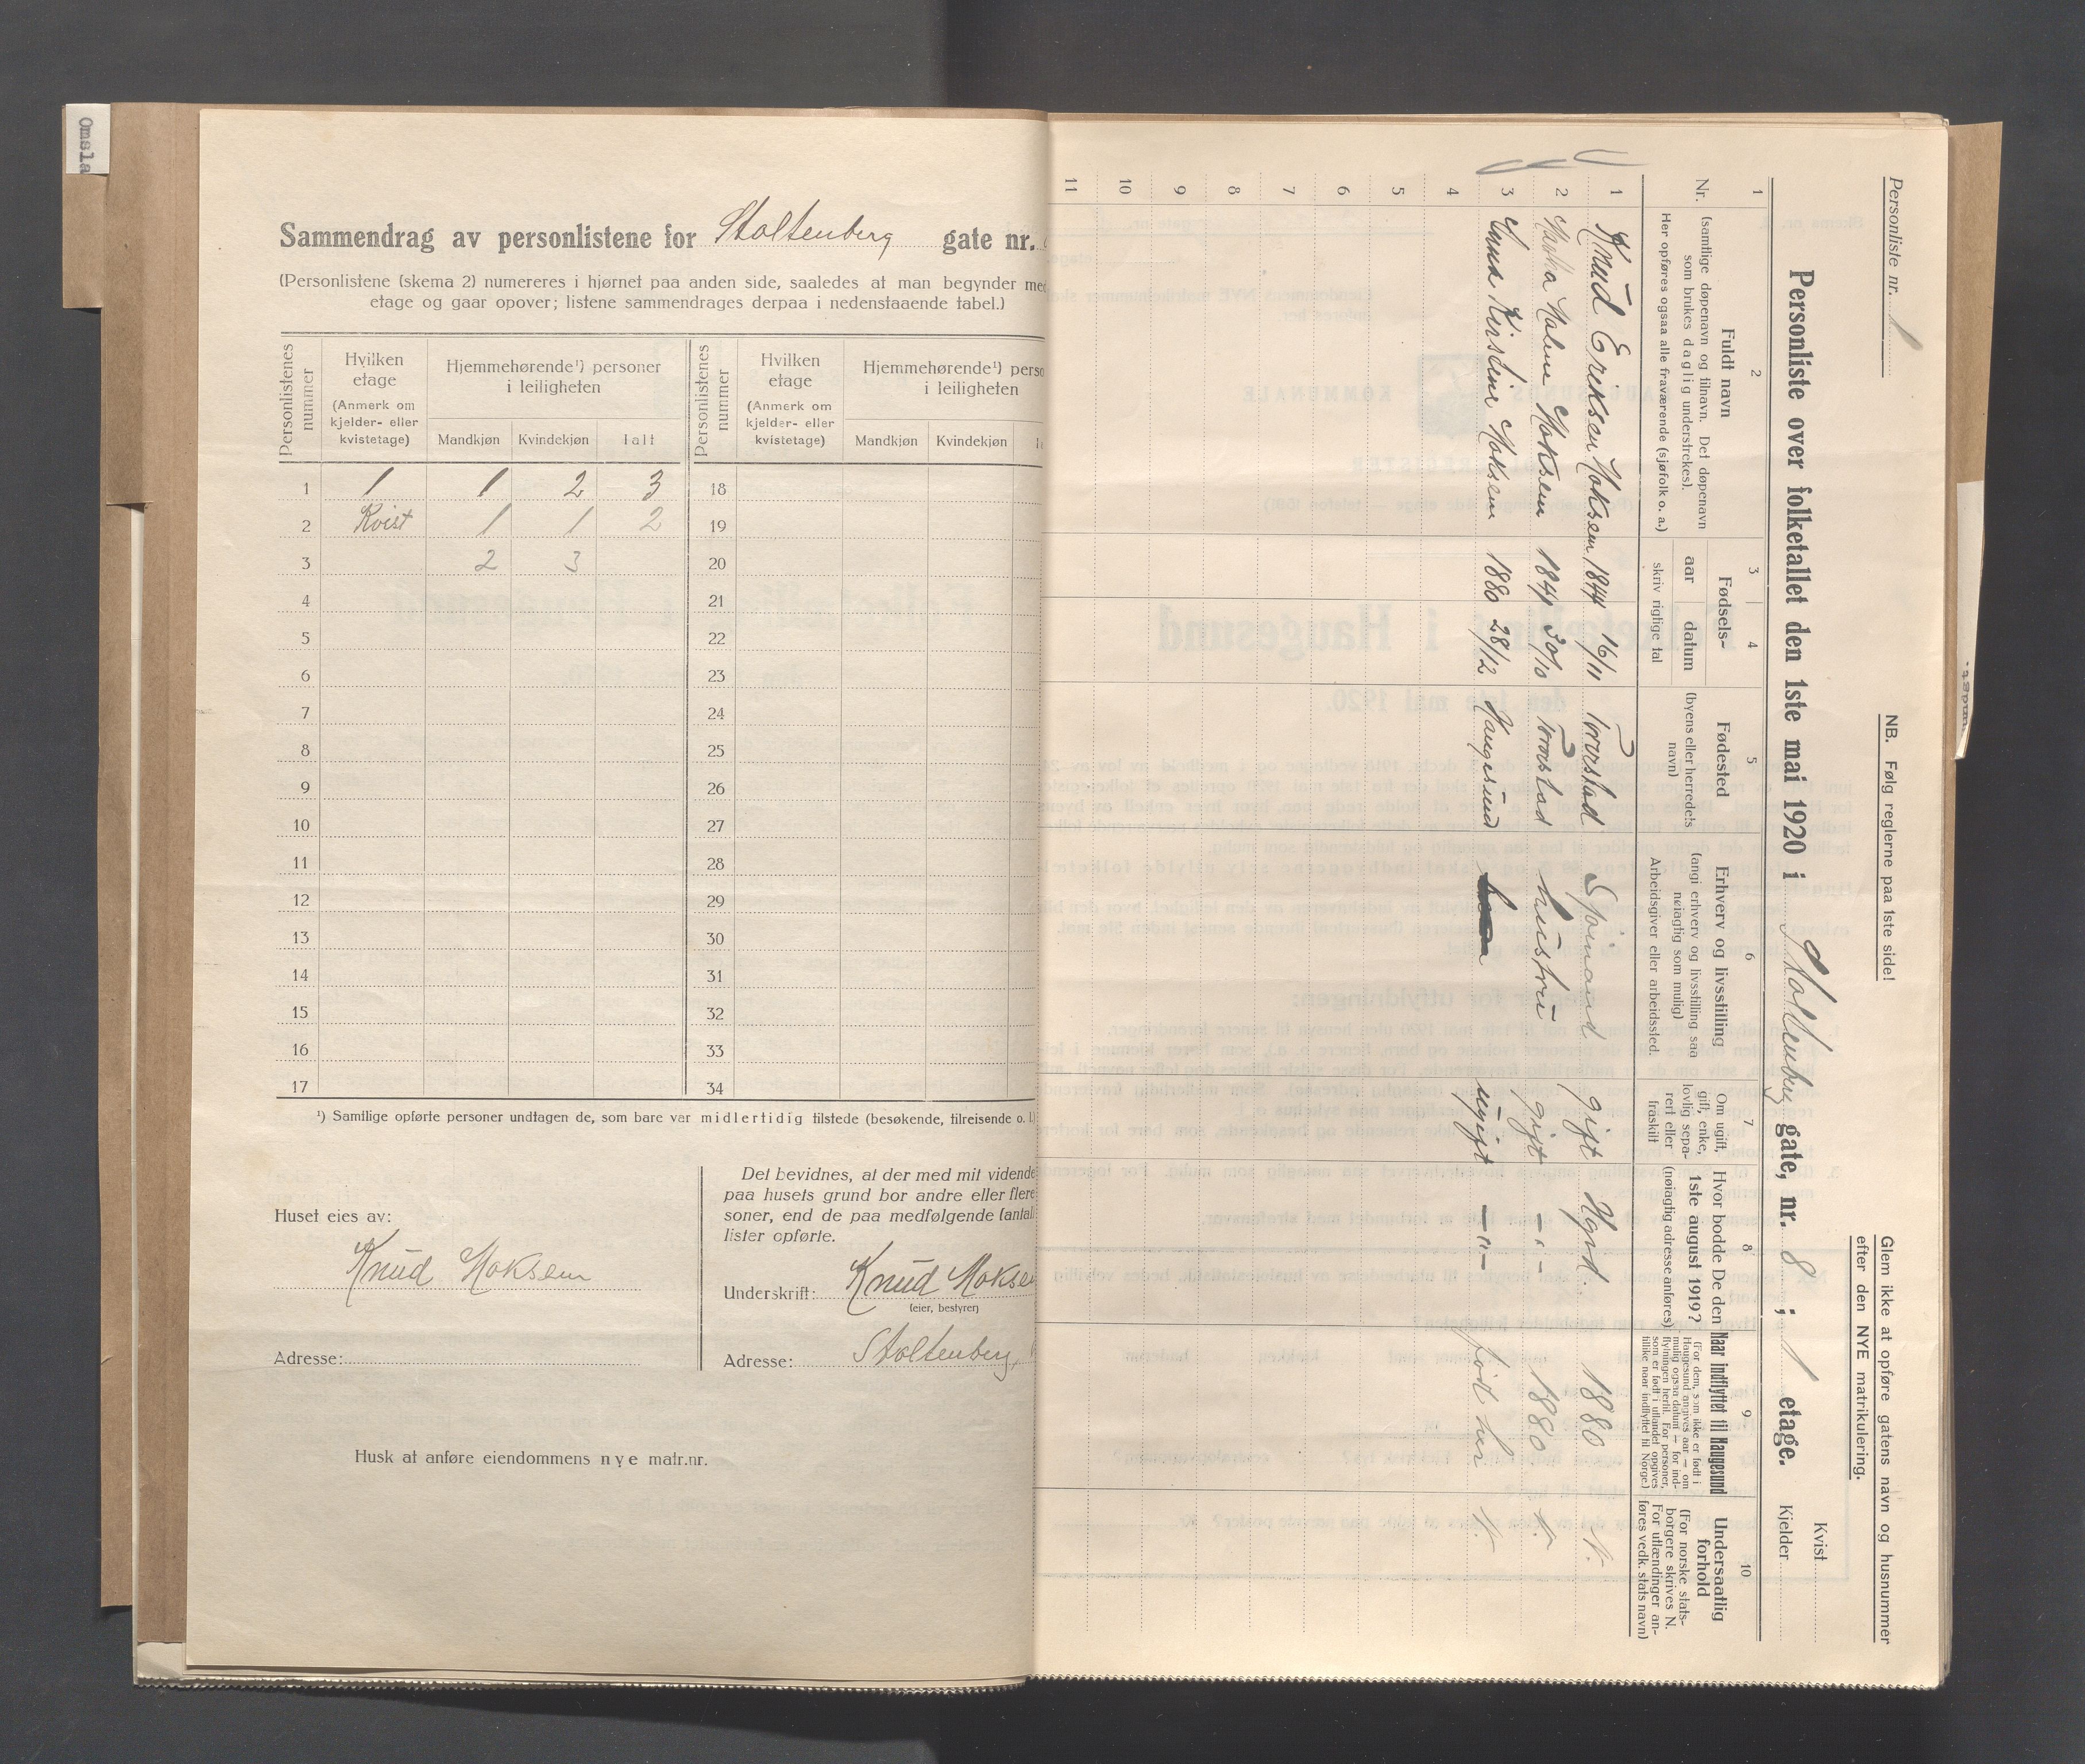 Omsla
Sammendrag av personlistene for Stoltenberg gate nr.
(Personlistene (skema 2) numereres i hjørnet paa anden side, saaledes at man begynder med
etage og gaar opover; listene sammendrages derpaa i nedenstaaende tabel.)
Personlistenes nummer
Hvilken etage
(Anmerk om kjelder- eller kvistetage)
Hjemmehørende¹) personer i leiligheten
Mandkjøn Kvindekjøn Ialt
Personlistenes nummer
Hvilken etage
(Anmerk om kjelder- eller kvistetage)
Hjemmehørende¹) perso
i leiligheten
Mandkjøn Kvindekjøn
1 1 1 2 3 18
2 Kvist 1 1 2 19
3 2 3 20
4 21
5 22
6 23
7 24
8 25
9 26
10 27
11 28
12 29
13 30
14 31
15 32
16 33
17 34
¹) Samtlige opførte personer undtagen de, som bare var midlertidig tilstede (besøkende, tilreisende o. l.)
Huset eies av:
Knud Moksen
Adresse:
Det bevidnes, at der med mit vidende
paa husets grund bor andre eller flere
soner, end de paa medfølgende (antal
lister opførte.
Underskrift: Knud Mokse
(eier, bestyrer)
Adresse: Stoltenberg,
Husk at anføre eiendommens nye matr.nr.
Personliste nr. 1
NB. Følg reglerne paa 1ste side!
Glem ikke at opføre gatens navn og husnummer
efter den NYE matrikulering.
Personliste over folketallet den 1ste mai 1920 i Stoltenberg gate, nr. 8 ; 1 etage.
Kvist
Kjelder
1 2 3 4 5 6 7 8 9 10
Nr.
Fuldt navn
(samtlige døpenavn og tilnavn. Det døpenavn
som brukes daglig understrekes).
Her opføres ogsaa alle fraværende (sjøfolk o. a.)
Fødsels-
aar datum
skriv rigtige tal
Fødested
(byens eller herredets
navn)
Erhverv og livsstilling
(angi erhverv og livsstilling saa
nøiagtig som mulig)
Arbeidsgiver eller arbeidssted.
Om ugift,
gift, enke,
lovlig sepa-
rert eller
fraskilt
Hvor bodde De den
1ste august 1919?
(nøiagtig adresse anføres)
Naar indflyttet til Haugesund
(For dem, som ikke er født i
Haugesund angives aar — om
mulig ogsaa datum — for ind-
flytningen hertil. For personer,
som er født i utlandet opgives
tillike naar indflyttet til Norge.)
Undersaatlig
forhold
(For norske stats-
borgere skrives N.
For utlændinger an-
føres vedk. stats navn)
1 Knud Eriksen Moksen 1844 16/11 Torvastad Sjømand gift Hgsd. 1880 N.
2 Malene Moksen 1844 30/10 Torvastad hustru gift -"- 1880 N.
3 Anna Kirstine Moksen 1880 28/12 Haugesund ugift -"- født her N.
4
5
6
7
8
9
10
11